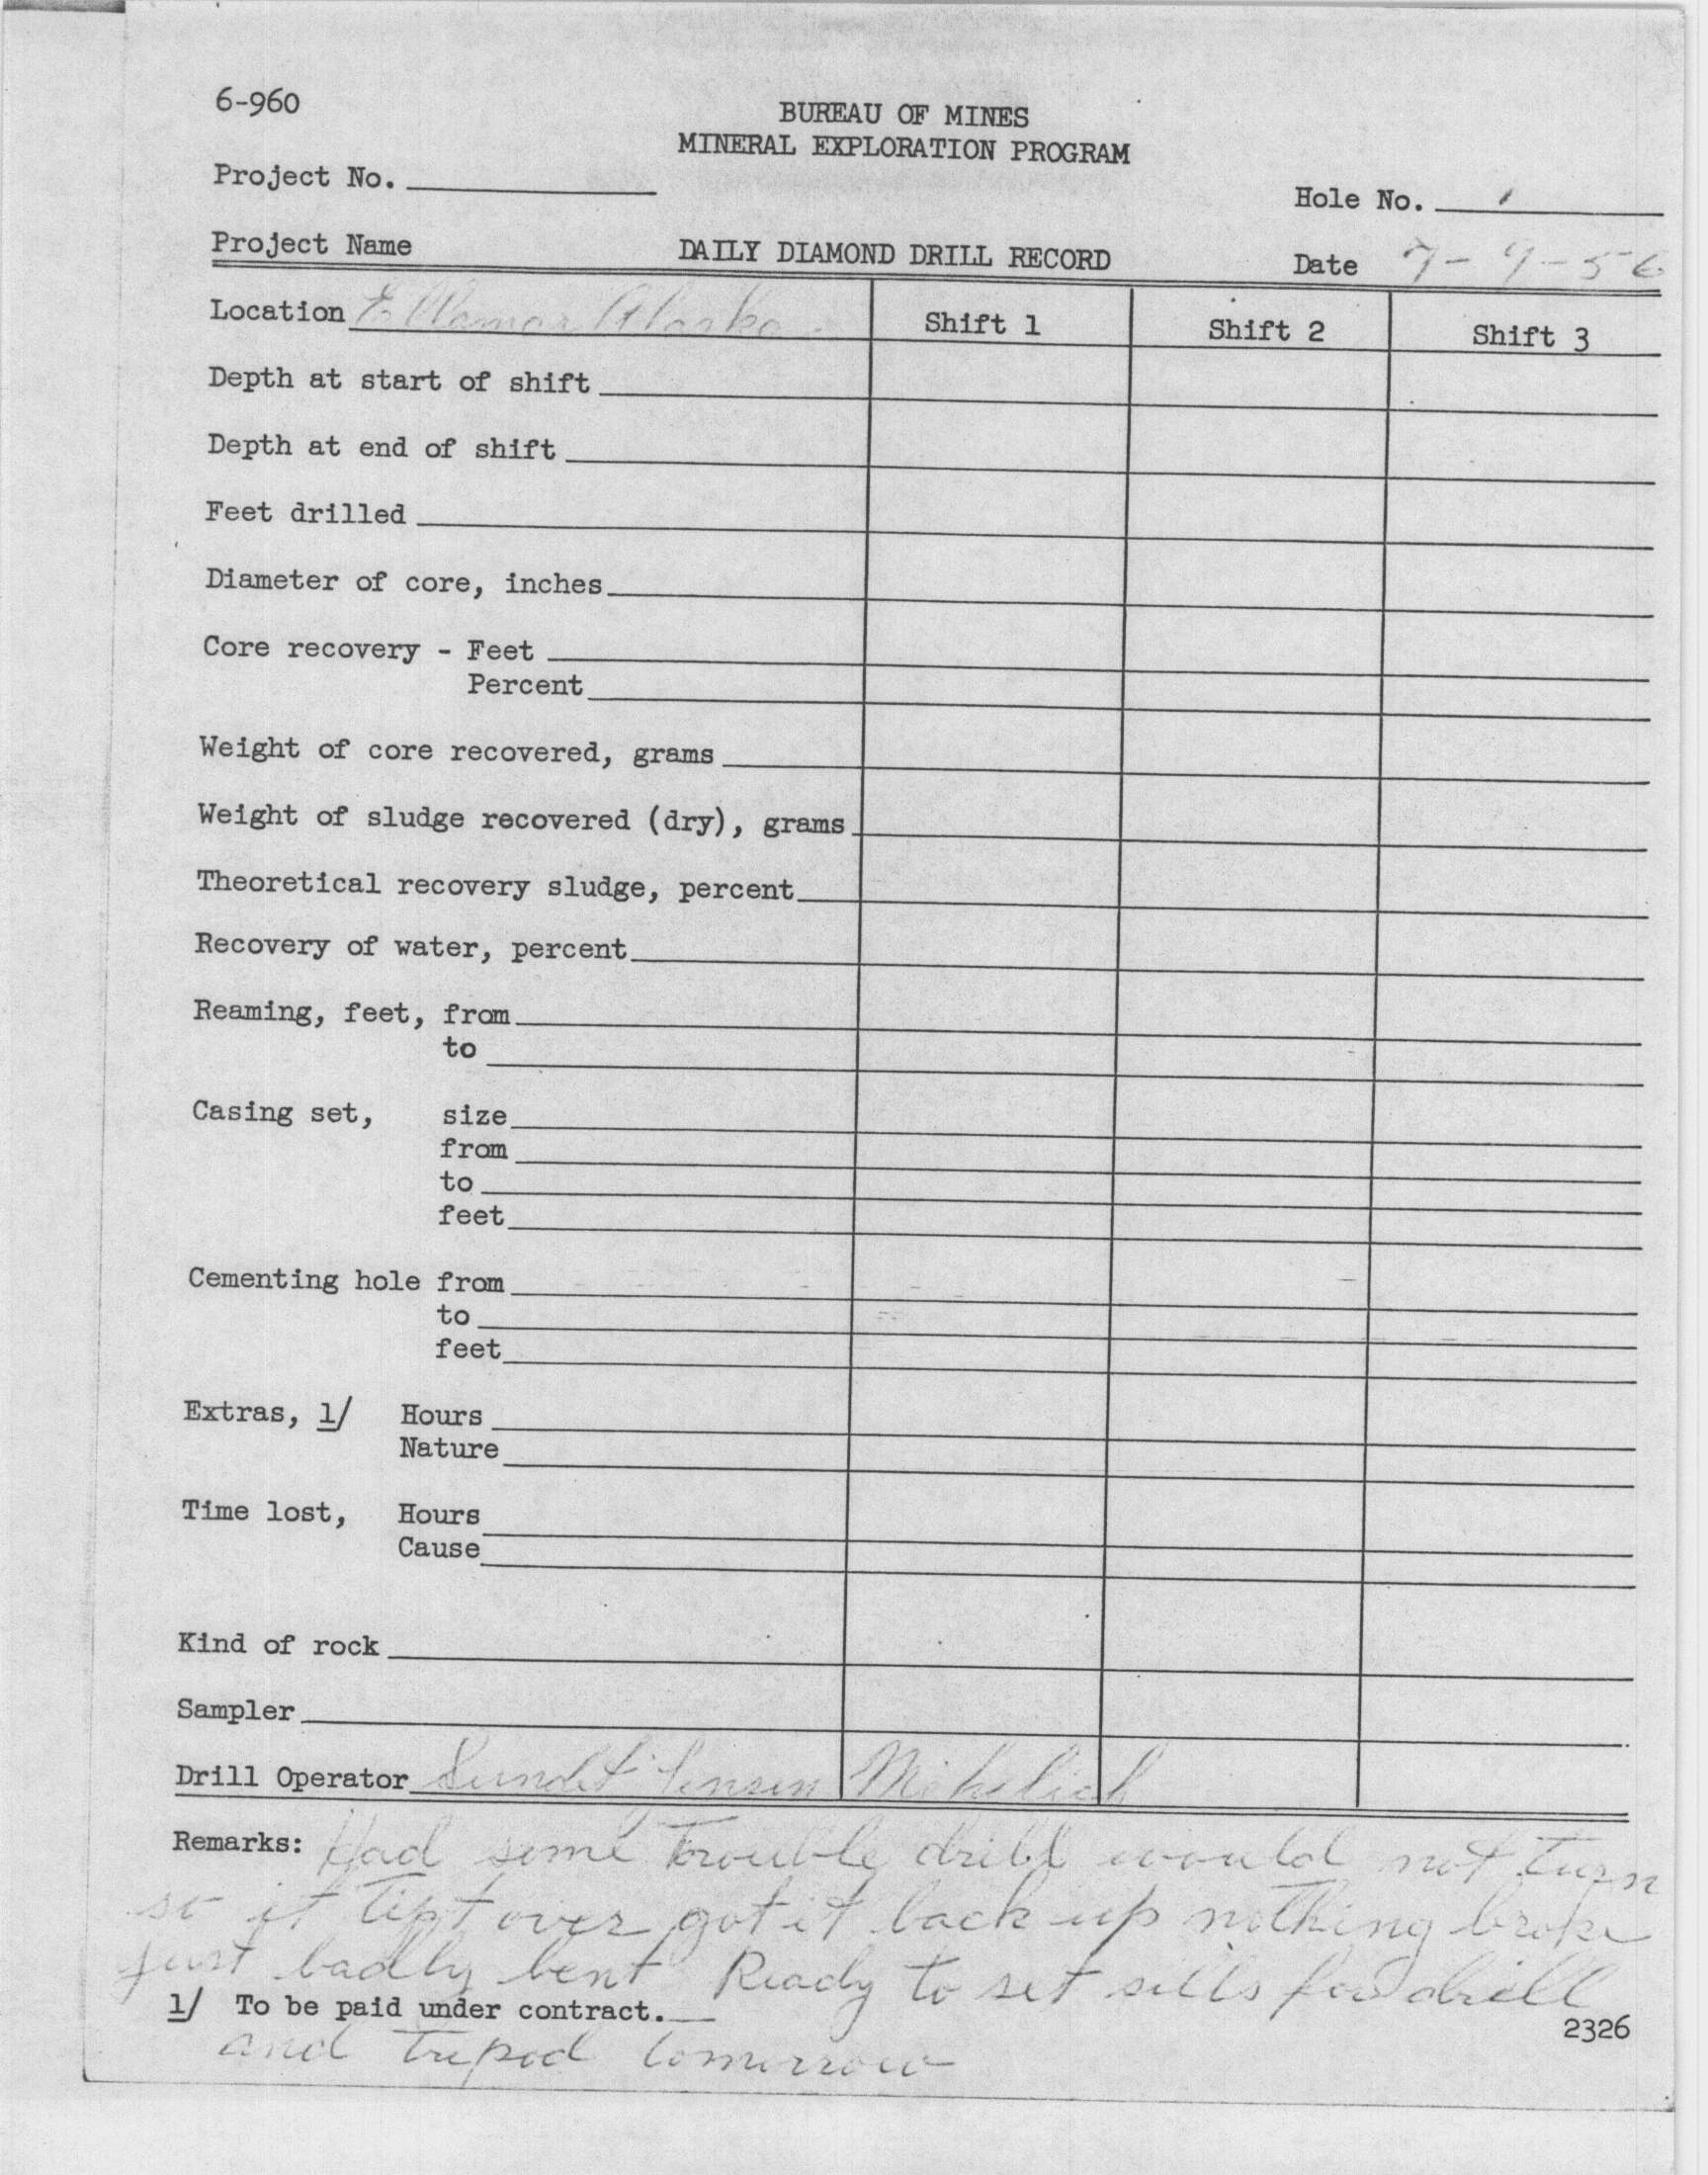 6-960
BUREAU OF MINES
MINERAL EXPLORATION PROGRAM
Project No.
Hole No. 1
Project Name
DAILY DIAMOND DRILL RECORD
Date 7-9-56
Location Ellamar Alaska
Shift 1
Shift 2
Shift 3
Depth at start of shift
Depth at end of shift
Feet drilled
Diameter of core, inches
Core recovery - Feet
Percent
Weight of core recovered, grams
Weight of sludge recovered (dry), grams
Theoretical recovery sludge, percent
Recovery of water, percent
Reaming, feet, from
to
Casing set, size
from
to
feet
Cementing hole from
to
feet
Extras, 1/ Hours
Nature
Time lost, Hours
Cause
Kind of rock
Sampler
Drill Operator Sundet Jensen Mihelich
Remarks: Had some trouble drill would not turn
so it tipt over got it back up nothing broke
just badly bent Ready to set sills for drill
1/ To be paid under contract.
2326
and tripod tomorrow